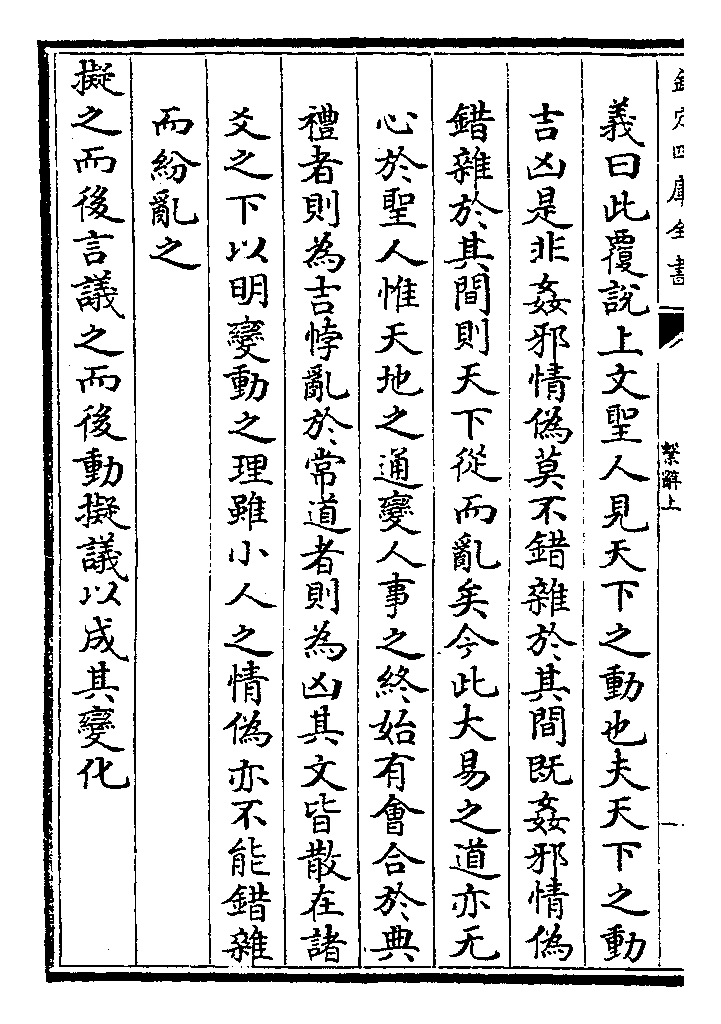 欽定四庫全書
繫辭上
義曰此覆說上文聖人見天下之動也夫天下之動
吉凶是非姦邪情偽莫不錯雜於其間既姦邪情偽
錯雜於其間則天下從而亂矣今此大易之道亦无
心於聖人惟天地之通變人事之終始有會合於典
禮者則為吉悖亂於常道者則為凶其文皆散在諸
爻之下以明變動之理雖小人之情偽亦不能錯雜
而紛亂之
擬之而後言議之而後動擬議以成其變化